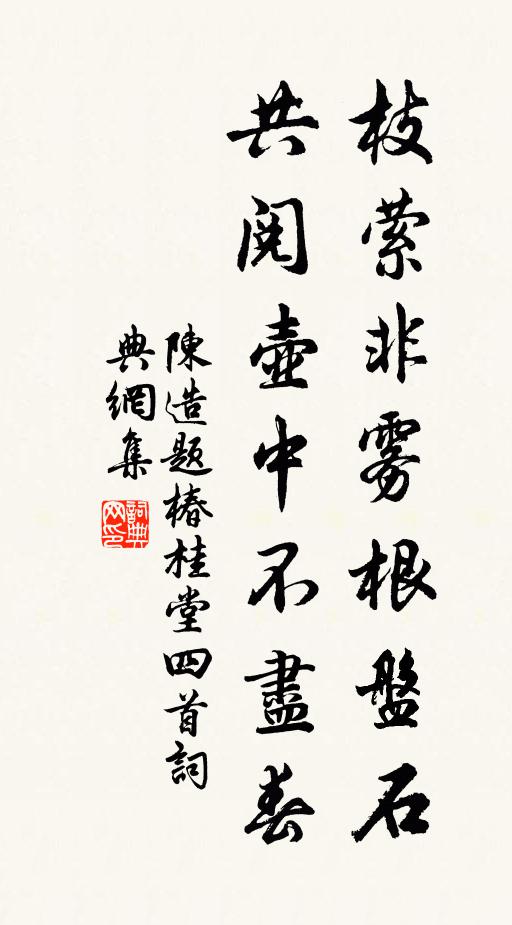 枝縈非雾根盤石
共閱壺中不盡春
陳造題椿桂堂四首詞
典網集
詞典网印